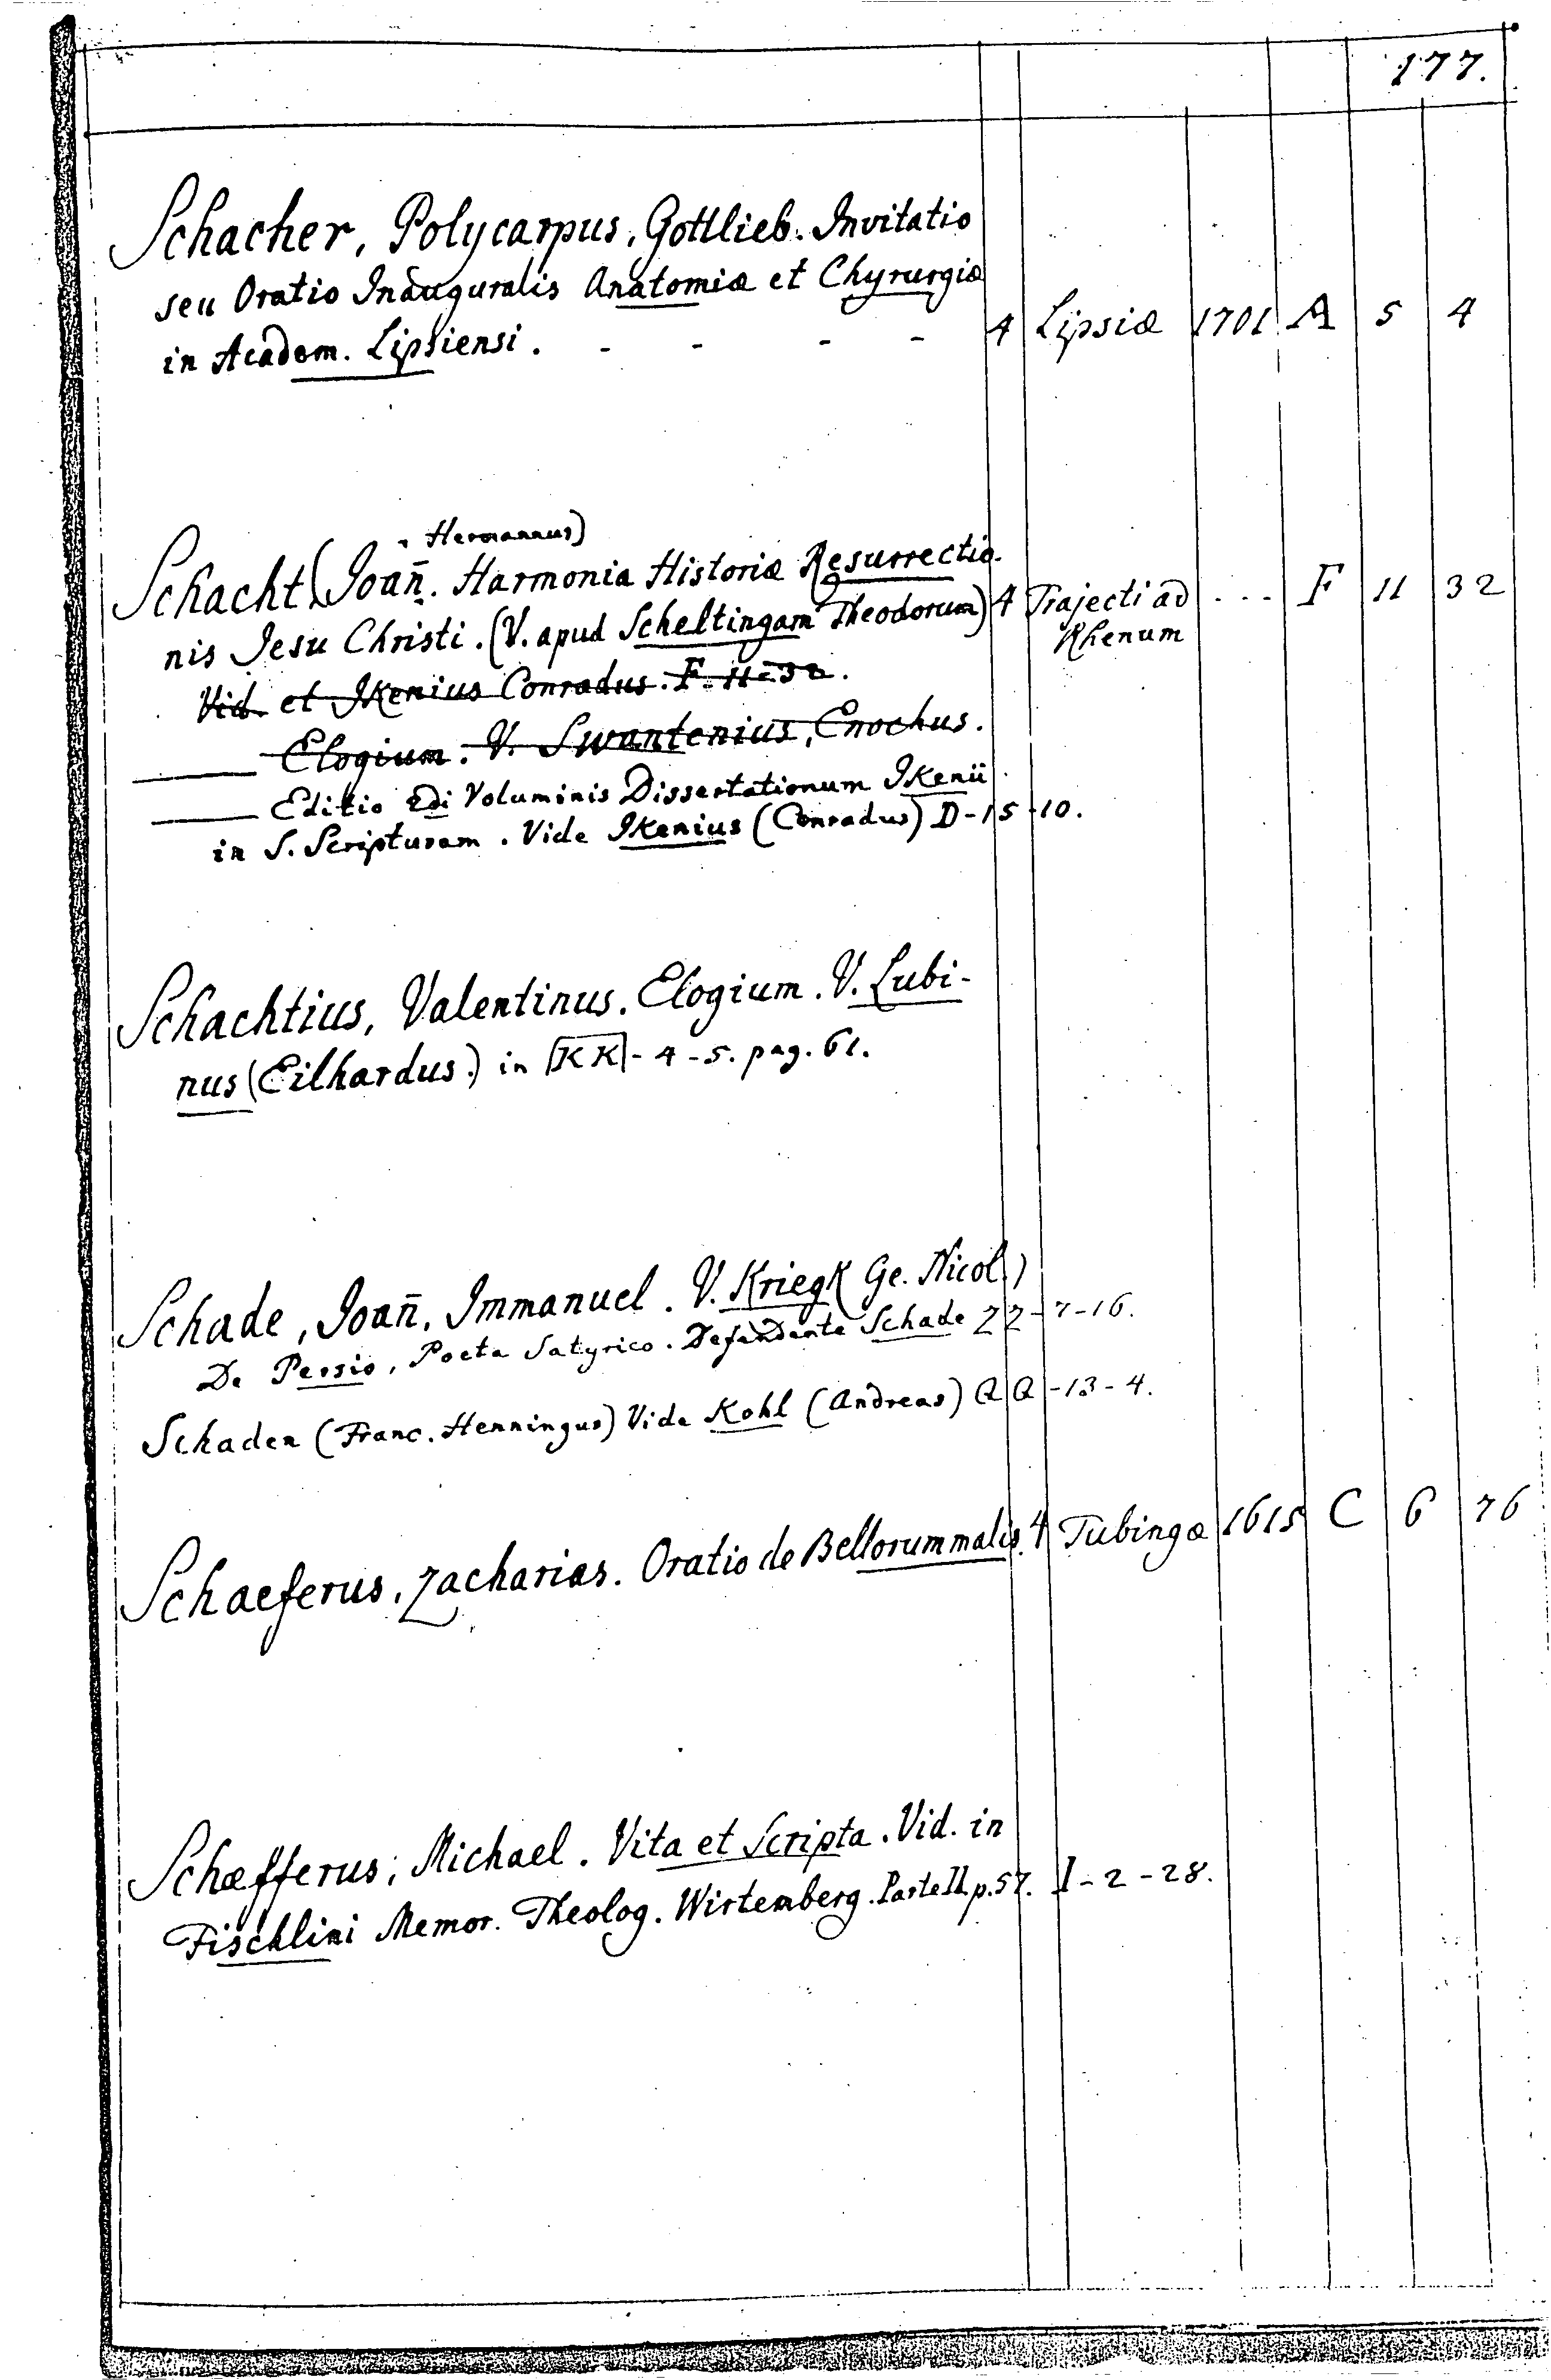 177.
Schacher, Polycarpus, Gottlieb. Invitatio
seu Oratio Inauguralis Anatomiæ et Chyrurgiæ
in Academ. Lipsiensi. - - - - 4 Lipsiæ 1701 A 5 4
Hermannus)
Schacht (Joañ. Harmonia Historiæ Resurrectio-
nis Jesu Christi. (V. apud Scheltingam Theodorum) 4 Trajecti ad ... F 11 32
Rhenum
Vid. et Ikenius Conradus. F-11-32.
Elogium. V. Swantenius, Enochus.
Editio 2di Voluminis Dissertationum Ikenii
in S. Scripturam. Vide Ikenius (Conradus) D-15-10.
Schachtius, Valentinus. Elogium. V. Lubi-
nus (Eilhardus.) in KK - 4 - 5. pag. 61.
Schade, Joañ. Immanuel. V. Kriegk (Ge. Nicol.)
De Persio, Poeta Satyrico. Defendente Schade ZZ-7-16.
Schaden (Franc. Henningus) Vide Kohl (Andreas) QQ-13-4.
Schaeferus, Zacharias. Oratio de Bellorum malis. 4 Tubingæ 1615 C 6 76
Schæfferus, Michael. Vita et Scripta. Vid. in
Fischlini Memor. Theolog. Wirtemberg. Parte II. p. 57. I-2-28.